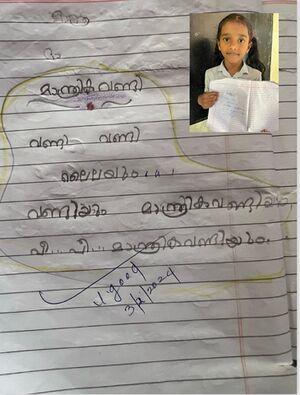 മാന്ത്രിക വണ്ടി
വണ്ടി വണ്ടി
ലൈലയും...
വണ്ടിയും മാന്ത്രികവണ്ടിയും
പീ... പീ... മാന്ത്രികവണ്ടിയും
V.good
3/2/2024